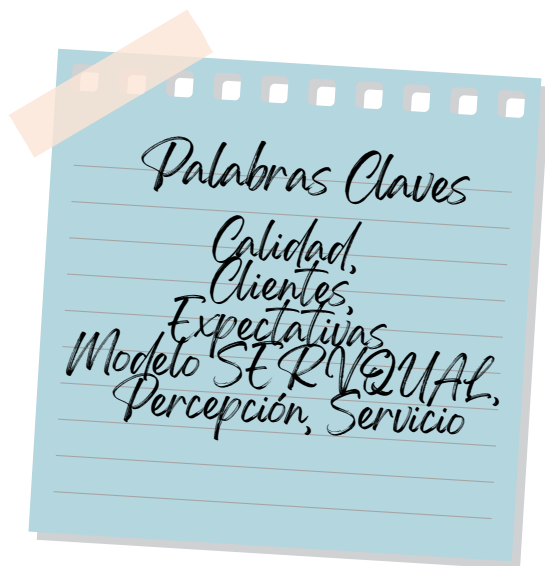 Palabras Claves
Calidad,
Clientes,
Expectativas
Modelo SERVQUAL,
Percepción, Servicio